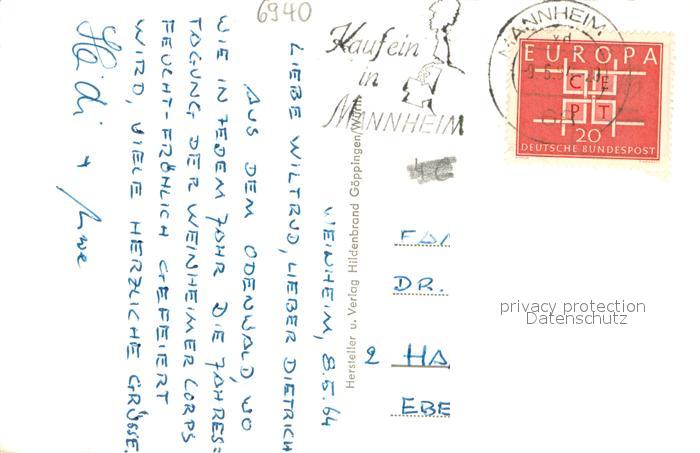 6940
Kauf ein
in
MANNHEIM
MANNHEIM
EUROPA
C E
P T
20
DEUTSCHE BUNDESPOST
WEINHEIM, 8.5.64
LIEBE WILTRUD, LIEBER DIETRICH
AUS DEM ODENWALD, WO
WIE IN JEDEM JAHR DIE JAHRES=
TAGUNG DER WEINHEIMER CORPS
FEUCHT-FRÖHLICH GEFEIERT
WIRD, VIELE HERZLICHE GRÜSSE.
Heidi + Uwe
Hersteller u. Verlag Hildenbrand Göppingen/Württ
DR.
2 HA
EBE
privacy protection
Datenschutz